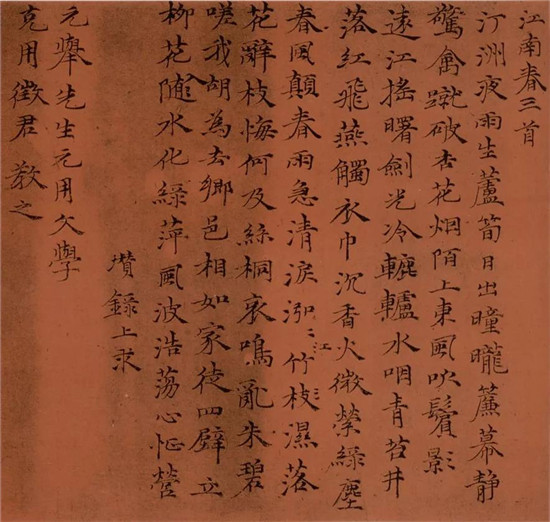 江南春三首
汀洲夜雨生蘆筍日出曈曨簾幕靜
驚禽蹴破杏花烟陌上東風吹鬢影
遠江搖曙劍光冷轆轤水咽青苔井
落紅飛燕觸衣巾沉香火微縈綠塵
春風顛春雨急清淚泓〻江竹枝濕落
花辭枝悔何及絲桐哀鳴亂朱碧
嗟我胡為去鄉邑相如家徒四壁立
柳花隨水化綠萍風波浩蕩心怔營
瓚錄上求
元舉先生元用文學
克用徵君 教之